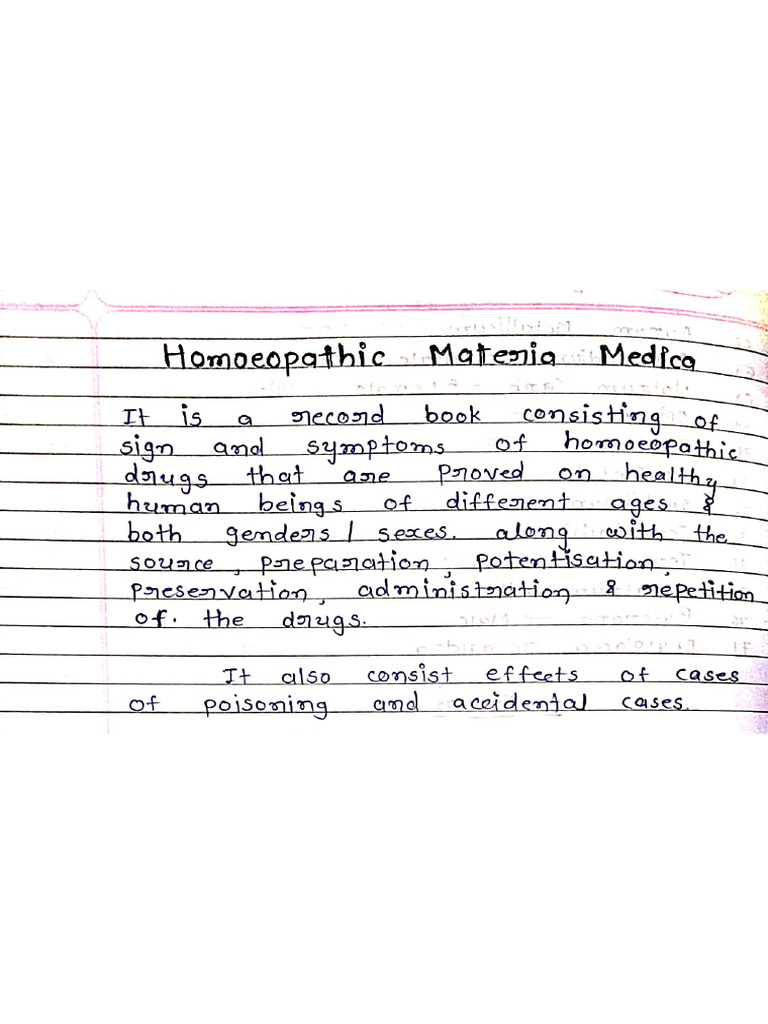 Homoeopathic Materia Medica
It is a record book consisting of
sign and symptoms of homoeopathic
drugs that are proved on healthy
human beings of different ages &
both genders / sexes. along with the
source, preparation, potentisation,
preservation, administration & repetition
of. the drugs.
It also consist effects of cases
of poisoning and accidental cases.